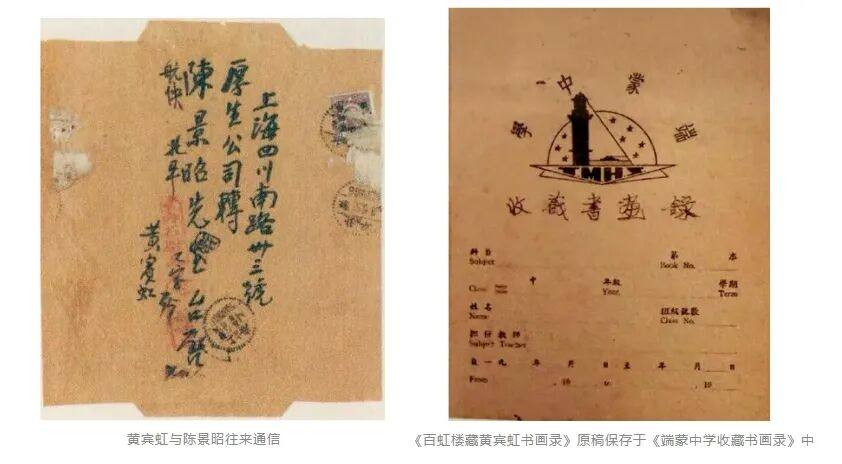 上海四川南路卅三號
厚生公司轉
陳景昭先生台啟
航快
黃賓虹
端蒙中學
TMHS
收藏書畫錄
科目 第 本
Subject Book No.
中 年級 學期
Class Year. Term
姓名 班級號數
Name Class No.
担任教師
Subject Teacher
自一九 年 月 日至 年 月 日
From , 19 to , 19
黄宾虹与陈景昭往来通信
《百虹楼藏黄宾虹书画录》原稿保存于《端蒙中学收藏书画录》中